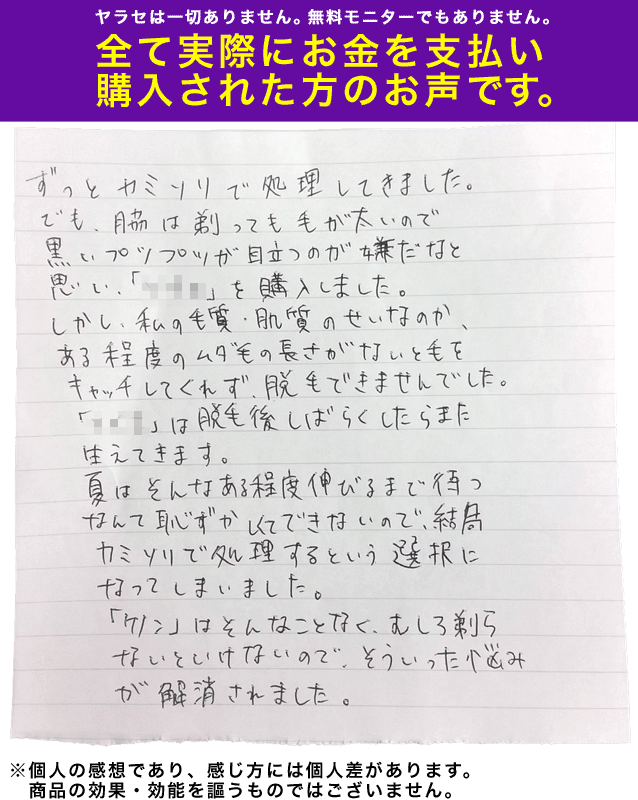 ヤラセは一切ありません。無料モニターでもありません。
全て実際にお金を支払い
購入された方のお声です。
ずっとカミソリで処理してきました。
でも、脇は剃っても毛が太いので
黒いプツプツが目立つのが嫌だなと
思い、「」を購入しました。
しかし、私の毛質・肌質のせいなのか、
ある程度のムダ毛の長さがないと毛を
キャッチしてくれず、脱毛できませんでした。
「」は脱毛後しばらくしたらまた
生えてきます。
夏はそんなある程度伸びるまで待つ
なんて恥ずかしくてできないので、結局
カミソリで処理するという選択に
なってしまいました。
「ケノン」はそんなことなく、むしろ剃ら
ないといけないので、そういった悩み
が解消されました。
※個人の感想であり、感じ方には個人差があります。
商品の効果・効能を謳うものではございません。